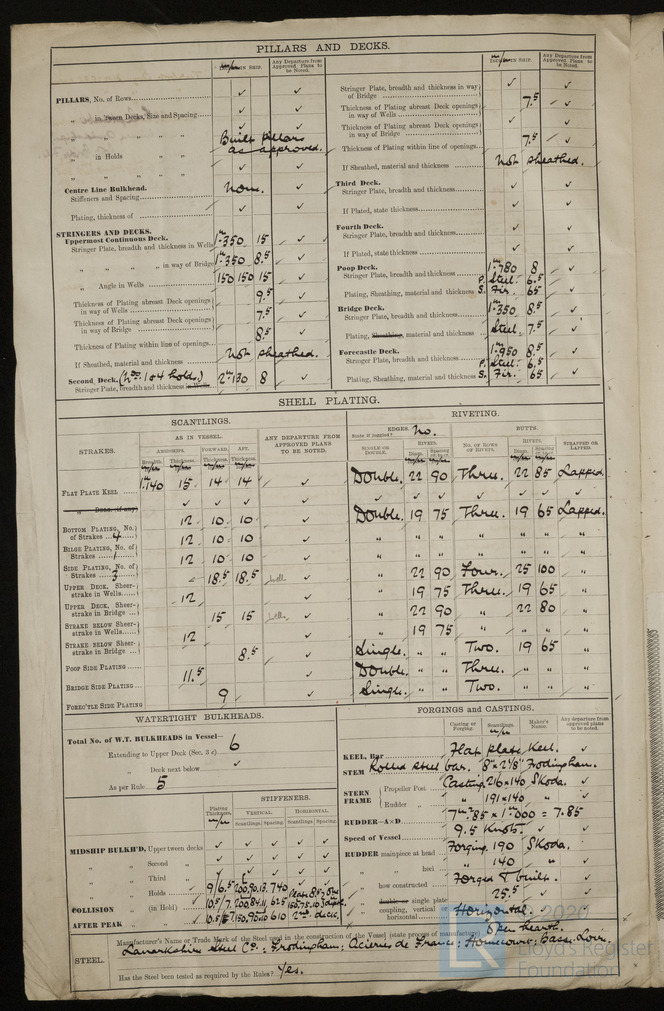 PILLARS AND DECKS.
IN SHIP. Any Departure from Approved Plans to be Noted.
PILLARS, No. of Rows ✓ ✓
„ in 'Tween Decks, Size and Spacing ✓ ✓
„ „ „ „ ✓
„ in Holds „ „ Built pillars as approved.
„ „ „ „ ✓ ✓
Centre Line Bulkhead. None. ✓
Stiffeners and Spacing
Plating, thickness of ✓ ✓
STRINGERS AND DECKS.
Uppermost Continuous Deck.
Stringer Plate, breadth and thickness in Wells 1.350 15 ✓
„ „ „ „ in way of Bridge 1.350 8.5 ✓
„ Angle in Wells 150 150 15 ✓
Thickness of Plating abreast Deck openings in way of Wells 9.5 ✓
Thickness of Plating abreast Deck openings in way of Bridge 7.5 ✓
Thickness of Plating within line of openings 8.5 ✓
If Sheathed, material and thickness Not sheathed.
Second Deck. (Nos 1 & 4 holds.)
Stringer Plate, breadth and thickness in Wells 2m130 8 ✓
IN SHIP. Any Departure from Approved Plans to be Noted.
Stringer Plate, breadth and thickness in way of Bridge ✓ ✓
Thickness of Plating abreast Deck openings in way of Wells 7.5 ✓
Thickness of Plating abreast Deck openings in way of Bridge ✓ ✓
Thickness of Plating within line of openings 7.5 ✓
If Sheathed, material and thickness Not sheathed.
Third Deck.
Stringer Plate, breadth and thickness ✓ ✓
If Plated, state thickness ✓ ✓
Fourth Deck.
Stringer Plate, breadth and thickness ✓ ✓
If Plated, state thickness ✓ ✓
Poop Deck.
Stringer Plate, breadth and thickness 1m780 8 ✓
Plating, Sheathing, material and thickness P. Steel. 6.5 S. Fir. 65 ✓
Bridge Deck.
Stringer Plate, breadth and thickness 1m350 8.5 ✓
Plating, Sheathing, material and thickness Steel. 7.5 ✓
Forecastle Deck.
Stringer Plate, breadth and thickness 1m950 8.5 ✓
Plating, Sheathing, material and thickness P. Steel. 6.5 S. Fir. 65 ✓
SHELL PLATING.
SCANTLINGS. RIVETING.
STRAKES. AS IN VESSEL. ANY DEPARTURE FROM APPROVED PLANS TO BE NOTED. EDGES. No. BUTTS.
State if joggled?
AMIDSHIPS. FORWARD. AFT. SINGLE OR DOUBLE. RIVETS. No. OF ROWS OF RIVETS. RIVETS. STRAPPED OR LAPPED.
Breadth. Thickness. Thickness. Thickness. Diam. Spacing Diam. Spacing
FLAT PLATE KEEL 1m140 15 14 14 ✓ Double. 22 90 Three. 22 85 Lapped.
„ Dblg. (if any) ✓ ✓ ✓ ✓ ✓ ✓ ✓ ✓ ✓ ✓
BOTTOM PLATING, No. of Strakes 4 12 10 10 ✓ Double. 19 75 Three. 19 65 Lapped.
BILGE PLATING, No. of Strakes 1 12 10 10 ✓ „ „ „ „ „ „ „
SIDE PLATING, No. of Strakes 3 12 10 10 ✓ „ „ „ „ „ „ „
UPPER DECK, Sheer-strake in Wells 18.5 18.5 wells ✓ „ 22 90 Four. 25 100 „
UPPER DECK, Sheer-strake in Bridge 12 ✓ „ 19 75 Three. 19 65 „
STRAKE BELOW Sheer-strake in Wells 15 15 wells ✓ „ 22 90 „ 22 80 „
STRAKE BELOW Sheer-strake in Bridge 12 ✓ „ 19 75
POOP SIDE PLATING 8.5 ✓ Single. „ „ Two. 19 65 „
BRIDGE SIDE PLATING 11.5 ✓ Double. „ „ Three. „ „ „
FORE'C'TLE SIDE PLATING 9 ✓ Single. „ „ Two. „ „ „
WATERTIGHT BULKHEADS.
Total No. of W.T. BULKHEADS in Vessel—
Extending to Upper Deck (Sec. 3 c) 6
„ Deck next below ✓
As per Rule 5
Plating Thickness. STIFFENERS.
VERTICAL. HORIZONTAL.
Scantlings. Spacing. Scantlings. Spacing.
MIDSHIP BULKH'D, Upper tween decks ✓ ✓ ✓ ✓ ✓
„ „ Second „ ✓ ✓ ✓ ✓ ✓
„ „ Third „ ✓ ✓ ✓ ✓
„ „ Holds 9/6.5 200.90.13. 740
COLLISION „ (in Hold) 10.5/7 625
AFTER PEAK „ „ 610 2nd deck.
FORGINGS and CASTINGS.
Casting or Forging. Scantlings. Maker's Name. Any departure from approved plans to be noted.
KEEL, Bar Flat plate keel. ✓
STEM Rolled steel bar. 8" × 2 1/8" Frodingham.
STERN FRAME Propeller Post Casting. 216×140 Skoda.
Rudder „ „ 191×140 „
RUDDER—A×D 7m²85 × 1m000 = 7.85
Speed of Vessel 9.5 Knots.
RUDDER mainpiece at head Forging. 190 Skoda.
„ „ heel „ 140 „
„ how constructed Forged & built.
„ double or single plate 25.5 ✓
„ coupling, vertical or horizontal Horizontal.
STEEL. Manufacturer's Name or Trade Mark of the Steel used in the construction of the Vessel (state process of manufacture) Open hearth.
Lanarkshire Steel Co.; Frodingham; Acieries de France; Homecourt; Basse-Loire.
Has the Steel been tested as required by the Rules? Yes.
2020
Lloyd's Register
Foundation